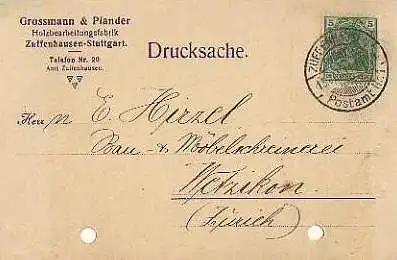 Grossmann & Pfander
Holzbearbeitungsfabrik
Zuffenhausen-Stuttgart.
Telefon Nr. 20
Amt Zuffenhausen.
Drucksache.
5 5
Postamt
Herrn E. Hirzel
Bau- & Möbelschreinerei
Wetzikon
(Zürich)